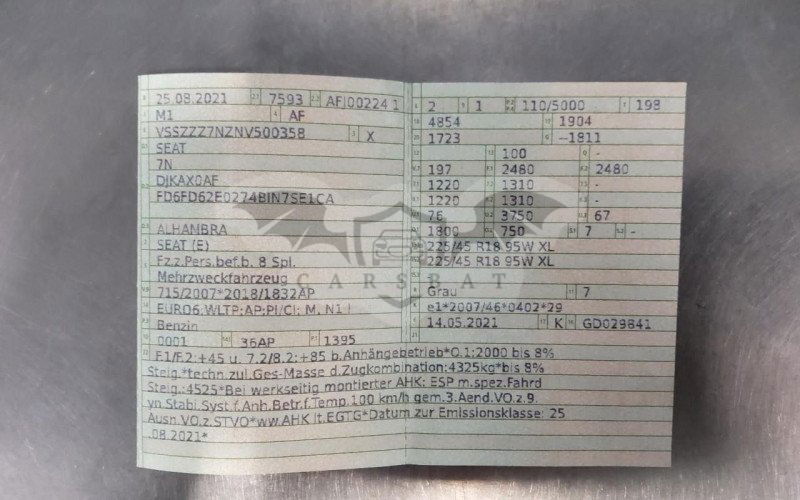 25.08.2021 7593 AFJ00224 1
M1 AF
VSSZZZ7NZNV500358 X
SEAT
7N
DJKAX0AF
FD6FD62E0274BIN7SE1CA
ALHAMBRA
SEAT (E)
Fz.z.Pers.bef.b. 8 Spl.
Mehrzweckfahrzeug
715/2007*2018/1832AP
EURO6;WLTP;AP;PI/CI; M, N1 I
Benzin
0001 36AP 1395
2 1 110/5000 198
4854 1904
1723 --1811
100 -
197 2480 2480
1220 1310 -
1220 1310 -
76 3750 67
1800 750 7 -
225/45 R18 95W XL
225/45 R18 95W XL
-
Grau 7
e1*2007/46*0402*29
14.05.2021 K GD029841
F.1/F.2:+45 u. 7.2/8.2:+85 b.Anhängebetrieb*O.1:2000 bis 8%
Steig.*techn.zul.Ges-Masse d.Zugkombination:4325kg*bis 8%
Steig.:4525*Bei werkseitig montierter AHK: ESP m.spez.Fahrd
yn.Stabi.Syst.f.Anh.Betr.f.Temp.100 km/h gem.3.Aend.VO.z.9.
Ausn.VO.z.STVO*ww.AHK lt.EGTG*Datum zur Emissionsklasse: 25
.08.2021*
CARSBAT